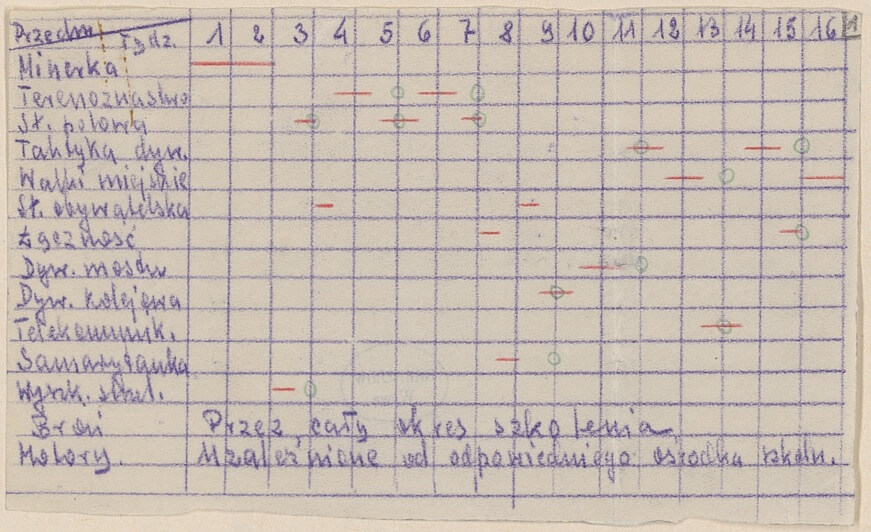 Przedm. Tydz. 1 2 3 4 5 6 7 8 9 10 11 12 13 14 15 16
Minerka
Terenoznastwo
Sł. polowa
Taktyka dyw.
Walki miejskie
Sł. obywatelska
Łączność
Dyw. mosów
Dyw. kolejowa
Telekomunik.
Samarytanka
Wyszk. strzel.
Broń Przez cały okres szkolenia
Motory. Uzależnione od odpowiedniego ośrodka szkoln.